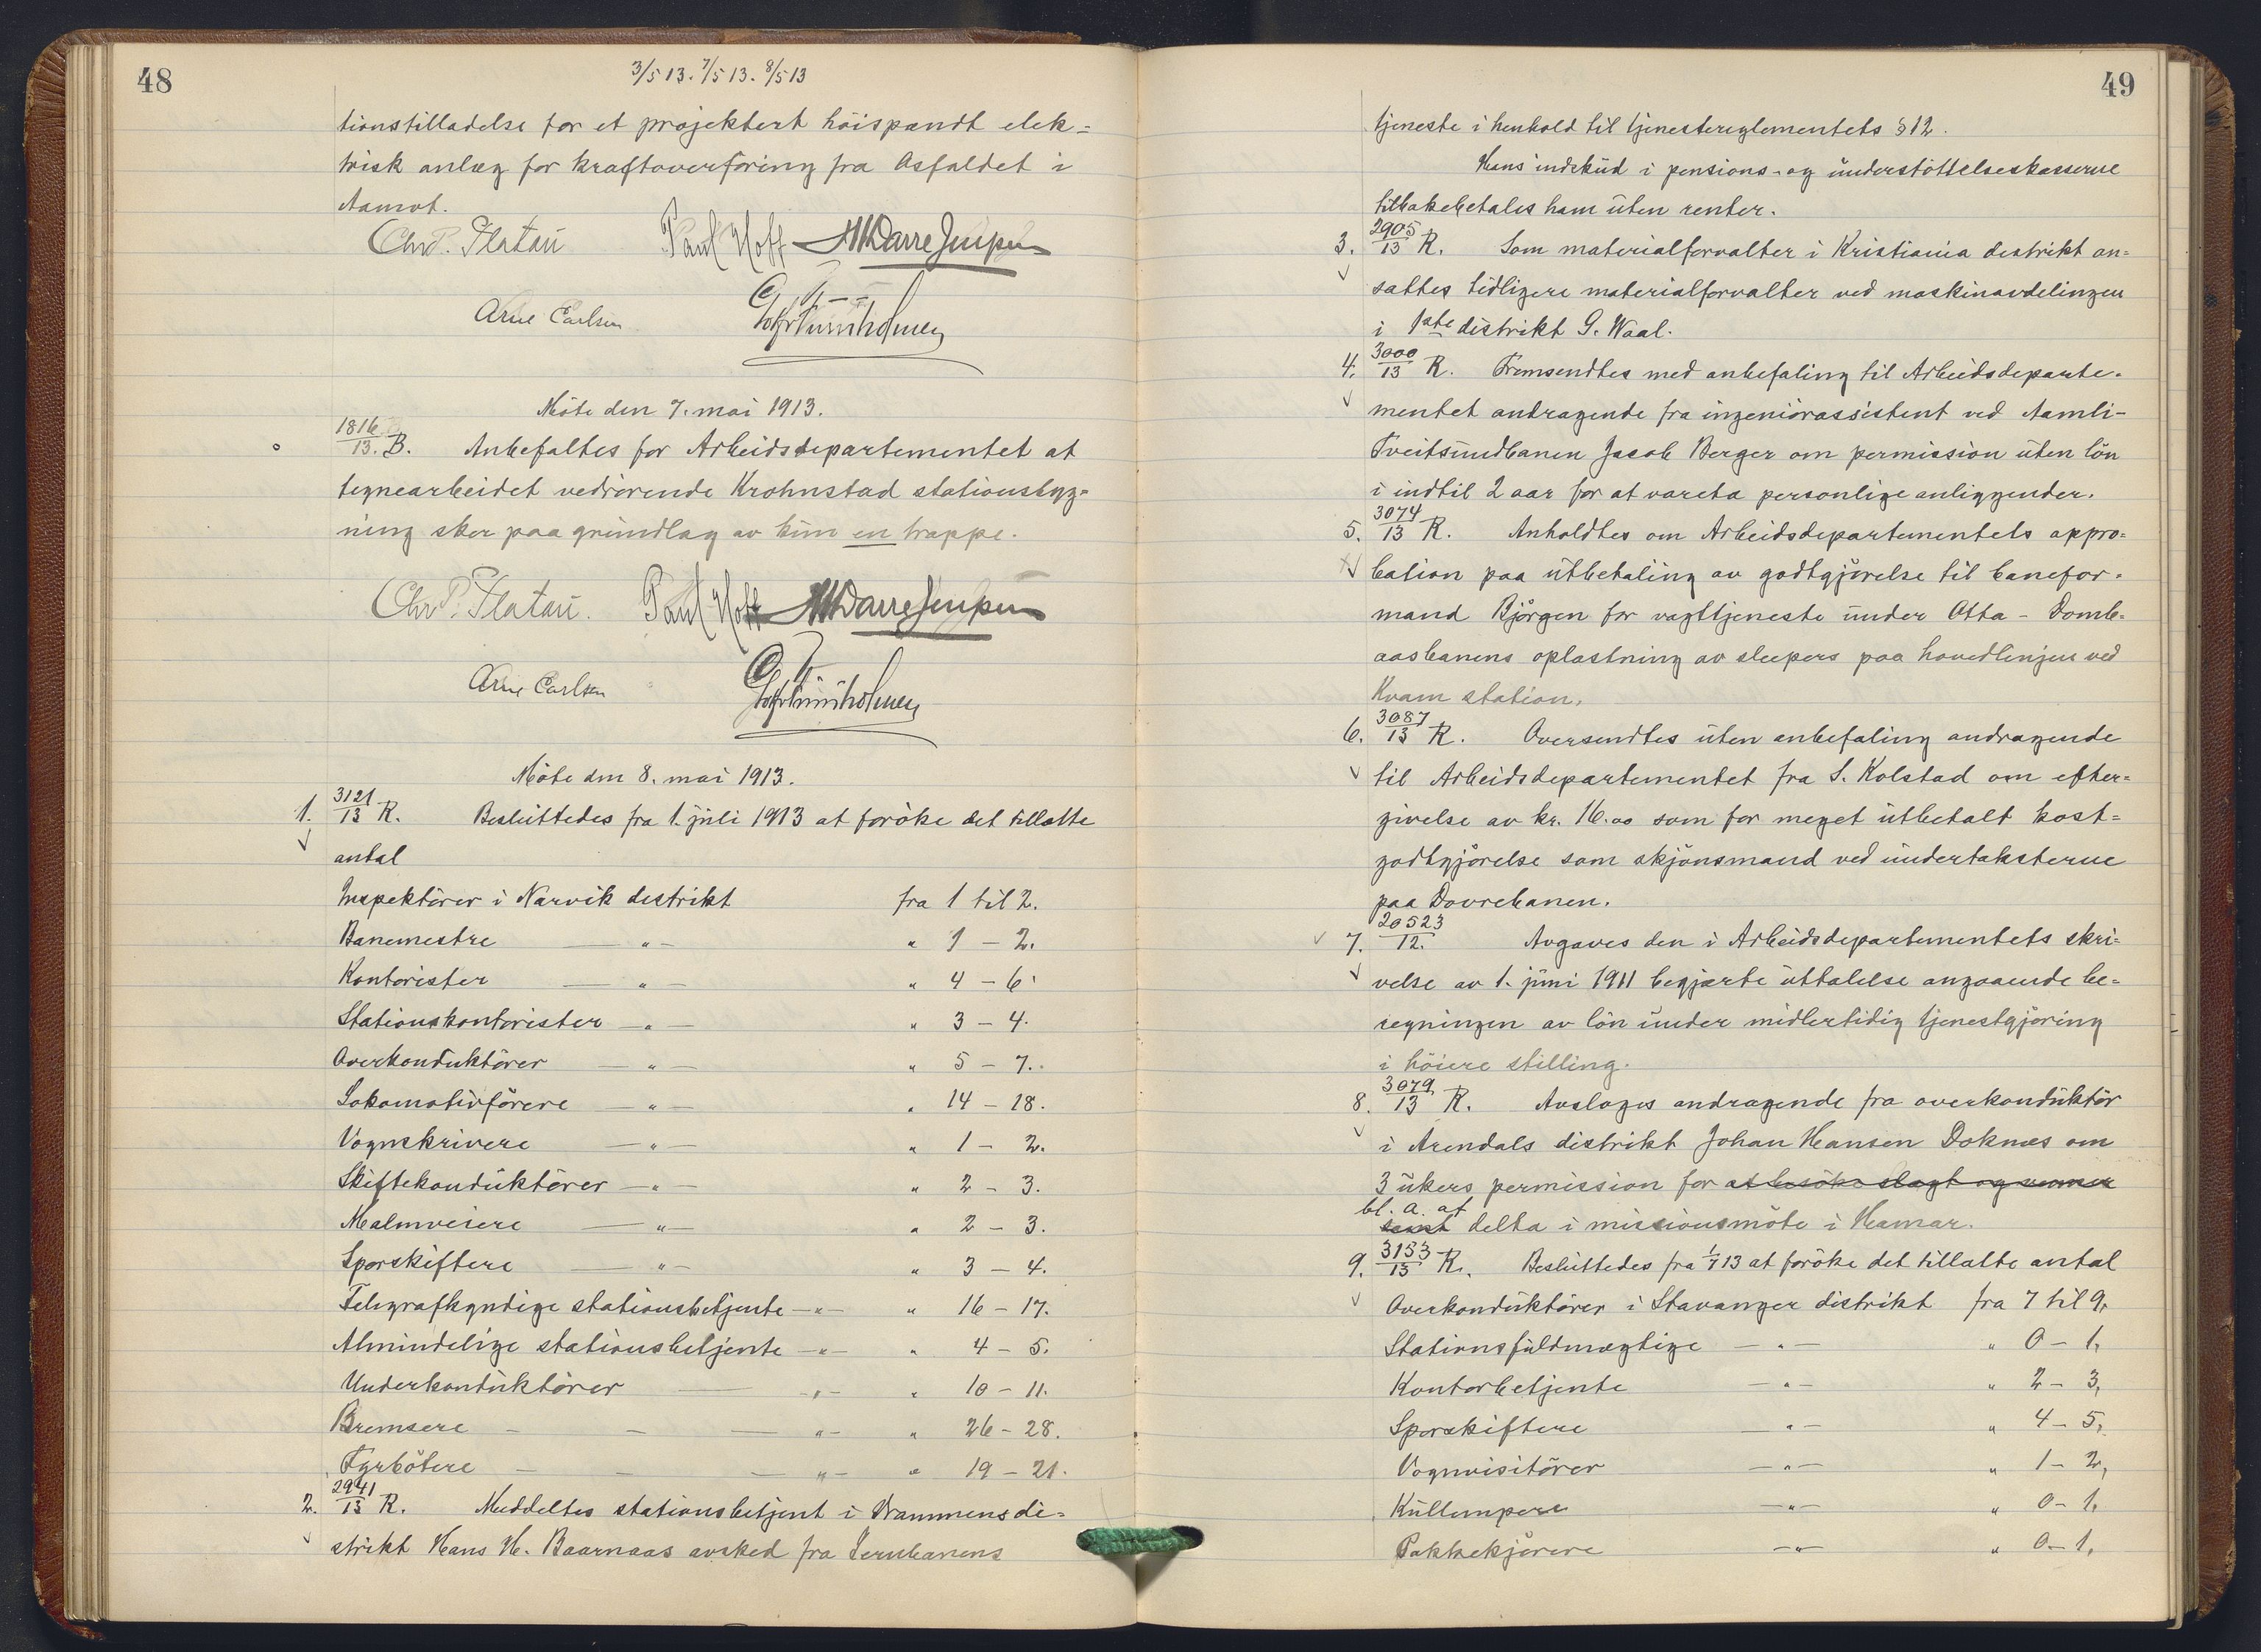 48
3/5 13. 7/5 13. 8/5 13
tionstilladelse for et projektert höispændt elek=
trisk anlæg for kraftoverföring fra Osfaldet i
Aamot.
Chr. P. Platou Paul Hoff
Arne Carlsen
Möte den 7. mai 1913.
1816/13. B. Anbefaltes for Arbeidsdepartementet at
tegnearbeidet vedrörende Krohnstad stationsbyg=
ning sker paa grundlag av kun en trappe.
Chr. P. Platou. Paul Hoff
Arne Carlsen
Möte den 8. mai 1913.
1. 3121/13 R. Besluttedes fra 1. juli 1913 at foröke det tillatte
antal
Inspektörer i Narvik distrikt fra 1 til 2.
Banemestre — " — " 1 – 2.
Kontorister — " — " 4 – 6.
Stationskontorister — " — " 3 – 4.
Overkonduktörer — " — " 5 – 7.
Lokomotivförere — " — " 14 – 18.
Vognskrivere — " — " 1 – 2.
Skiftekonduktörer — " — " 2 – 3.
Malmveiere — " — " 2 – 3.
Sporskiftere — " — " 3 – 4.
Telegrafkyndige stationsbetjente — " — " 16 – 17.
Almindelige stationsbetjente — " — " 4 – 5.
Underkonduktörer — " — " 10 – 11.
Bremsere — " — " 26 – 28.
Fyrbötere — " — " 19 – 21.
2. 2941/13 R. Meddeltes stationsbetjent i Drammens di=
strikt Hans H. Baarnaas avsked fra Jernbanens
49
tjeneste i henhold til tjenestereglementets § 12.
Hans indskud i pensions- og understöttelseskasserne
tilbakebetales ham uten renter.
3. 2905/13 R. Som materialforvalter i Kristiania distrikt an=
sattes tidligere materialforvalter ved maskinavdelingen
i 1ste distrikt G. Waal.
4. 3000/13 R. Fremsendtes med anbefaling til Arbeidsdeparte=
mentet andragende fra ingeniörassistent ved Aamli-
Tveitsundbanen Jacob Berger om permission uten lön
i indtil 2 aar for at vareta personlige anliggender.
5. 3074/13 R. Anholdtes om Arbeidsdepartementets appro=
bation paa utbetaling av godtgjörelse til banefor=
mand Björgen for vagttjeneste under Otta – Domb=
aasbanens oplastning av sleepers paa hovedlinjen ved
Kvam station.
6. 3087/13 R. Oversendtes uten anbefaling andragende
til Arbeidsdepartementet fra S. Kolstad om efter=
givelse av kr. 16.00 som for meget utbetalt kost=
godtgjörelse som skjönsmand ved undertaksterne
paa Dovrebanen.
7. 20523/12. Avgaves den i Arbeidsdepartementets skri=
velse av 1. juni 1911 begjærte uttalelse angaaende be=
regningen av lön under midlertidig tjenestgjöring
i höiere stilling.
8. 3079/13 R. Avsloges andragende fra overkonduktör
i Arendals distrikt Johan Hansen Doknæs om
3 ukers permission for at besöke slegt og venner
bl. a. at
samt delta i missionsmöte i Hamar.
9. 3153/13 R. Besluttedes fra 1/7 13 at foröke det tillatte antal
Overkonduktörer i Stavanger distrikt fra 7 til 9,
Stationsfuldmægtige — " — " 0 – 1,
Kontorbetjente — " — " 2 – 3,
Sporskiftere — " — " 4 – 5,
Vognvisitörer — " — " 1 – 2,
Kullempere — " — " 0 – 1,
Pakkekjörere — " — " 0 – 1,